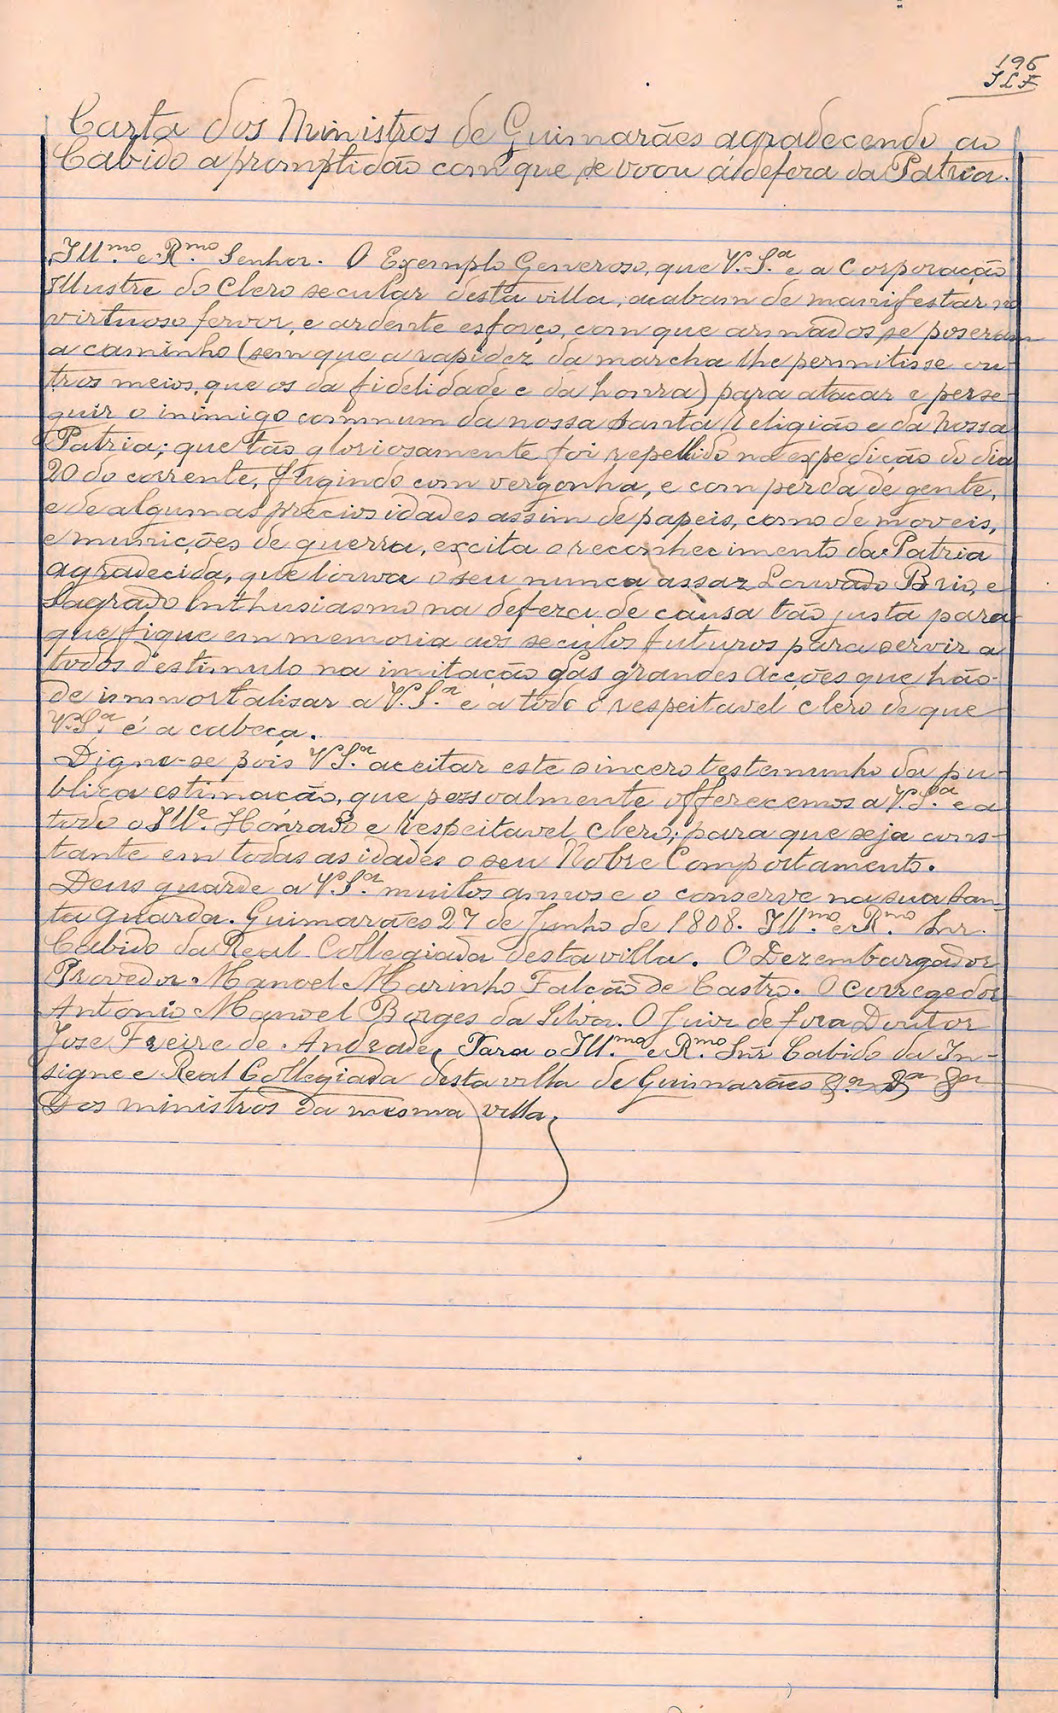 196
Carta dos Ministros de Guimarães agradecendo ao
Cabido a promptidão com que se voou á defeza da Patria.
Ill.mo e R.mo Senhor. O Exemplo Generoso, que V. S.a e a Corporação
Illustre do Clero secular desta villa, acabam de manifestar no
virtuoso fervor, e ardente esforço, com que armados se poseram
a caminho (sem que a rapidez da marcha lhe permitisse ou-
tros meios, que os da fidelidade e da honra) para atacar e perse-
guir o inimigo commum da nossa Santa Religião e da Nossa
Patria; que tão gloriosamente foi repellido na expedição do dia
20 do corrente, fugindo com vergonha, e com perda de gente,
e de algumas preciosidades assim de papeis, como de moveis,
e munições de guerra, excita o reconhecimento da Patria
agradecida, que louva o seu nunca assaz Louvado Brio, e
Sagrado Enthusiasmo na defeza de causa tão justa para
que fique em memoria aos seculos futuros para servir a
todos d'estimulo na imitação das grandes Acções que hão-
de immortalisar a V. S.a e a todo o respeitavel clero de que
V. S.a é a cabeça.
Digne-se pois V. S.a aceitar este sincero testemunho da pu-
blica estimação, que pessoalmente offerecemos a V. S.a e a
todo o Ill.e Honrado e respeitavel clero; para que seja cons-
tante em todas as idades o seu Nobre Comportamento.
Deus guarde a V. S.a muitos annos e o conserve na sua San-
ta Guarda. Guimarães 27 de Junho de 1808. Ill.mo e R.mo Snr.
Cabido da Real Collegiada desta villa. O Dezembargador
Provedor Manoel Marinho Falcão de Castro. O Corregedor
Antonio Manoel Borges da Silva. O Juiz de fora Doutor
Jose Freire de Andrade. Para o Ill.mo e R.mo Snr Cabido da In-
signe e Real Collegiada desta villa de Guimarães
Dos ministros da mesma villa.